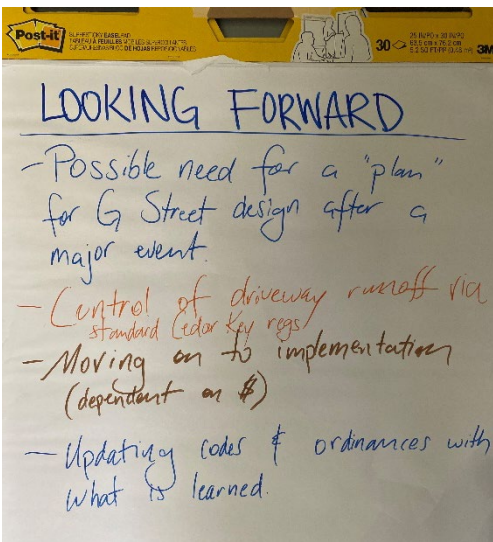 Post-it
SUPER STICKY EASEL PAD
30
25 IN/PO x 30 IN/PO
63.5 cm x 76.2 cm
3M
LOOKING FORWARD
- Possible need for a "plan"
for G Street design after a
major event.
- Control of driveway runoff via
standard Cedar Key regs
- Moving on to implementation
(dependent on $)
- Updating codes & ordinances with
what is learned.